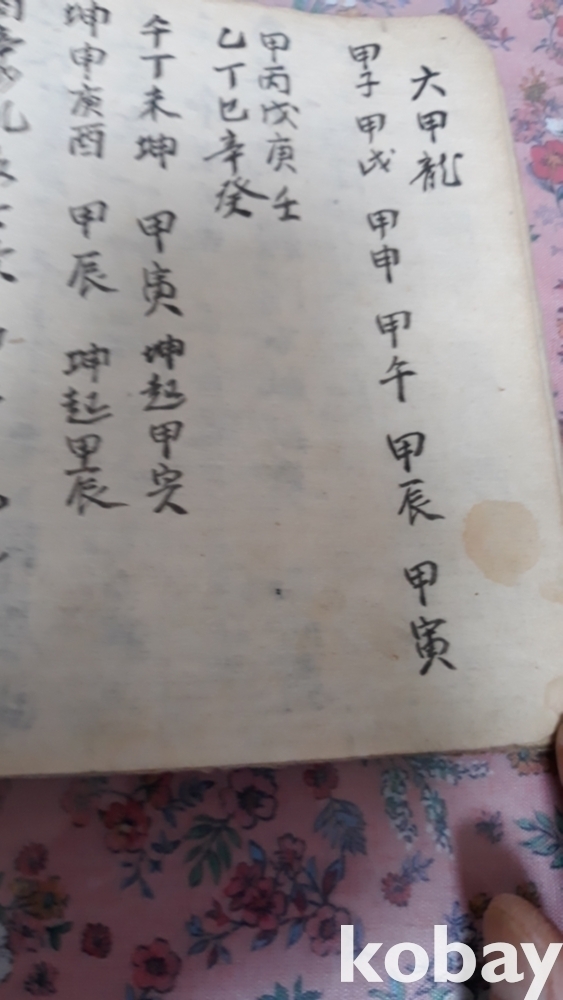 六甲龍
甲子 甲戌 甲申 甲午 甲辰 甲寅
甲丙戊庚壬
乙丁巳辛癸
午丁未坤 甲寅 坤起甲寅
坤申庚酉 甲辰 坤起甲辰
kobay